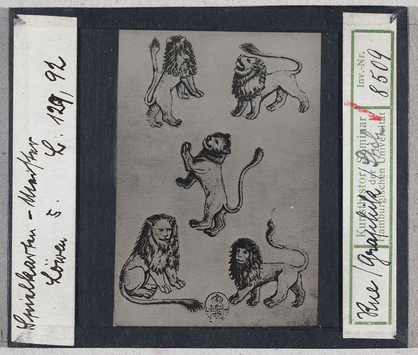 Spielkarten-Meister
Löwen 5. L. 129, 92
Kunsthistor. Seminar
der
Hamburgischen Universität
Inv.-Nr.
8509
Rue/Graphik